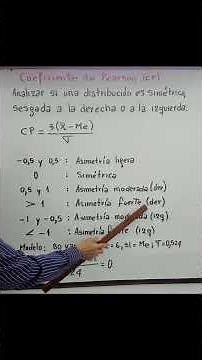 Coeficiente de Pearson (CP)
Analizar si una distribución es simétrica,
sesgada a la derecha o a la izquierda.
CP = 3(x̄ - Me)
σ
-0,5 y 0,5 : Asimetría ligera
0 : Simétrica
0,5 y 1 : Asimetría moderada (der)
> 1 : Asimetría fuerte (der)
-1 y -0,5 : Asimetría moderada (izq)
< -1 : Asimetría fuerte (izq)
Modelo: = Me
= 0